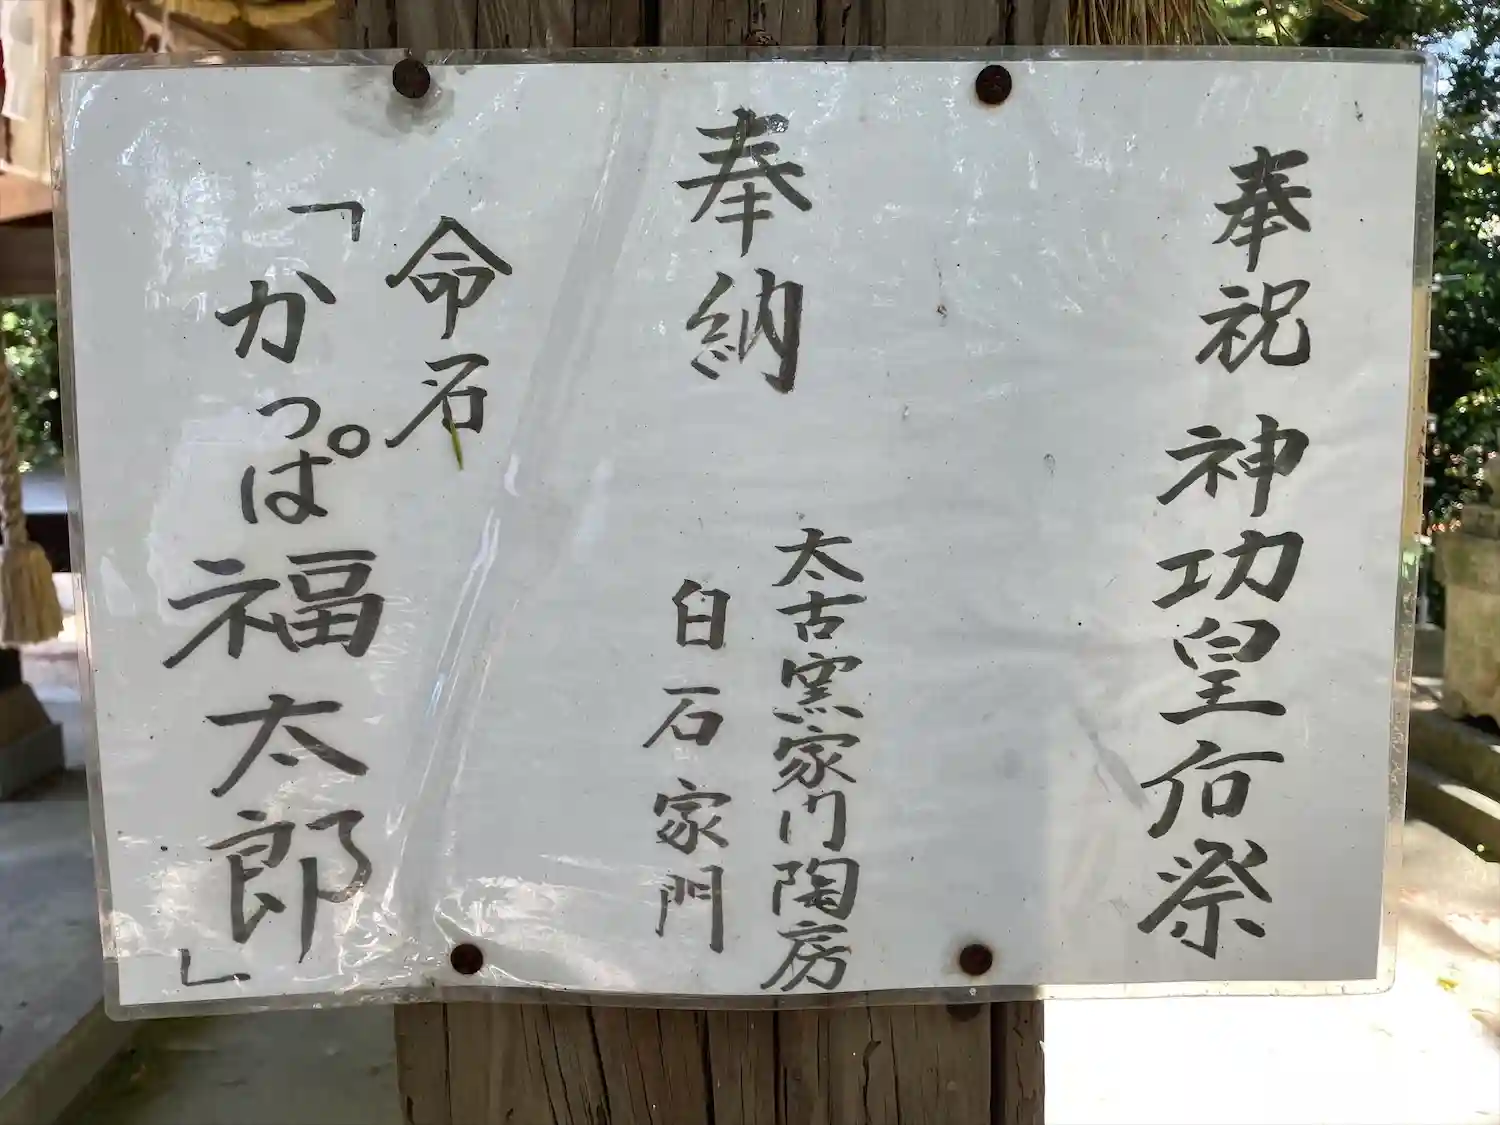 奉祝 神功皇后祭
奉納
太古窯家門陶房
白石家門
命石
「かっぱ福太郎」